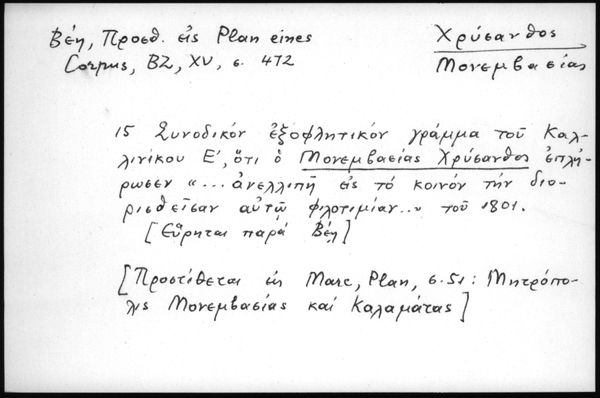 Βέη, Προσθ. εἰς Plan eines
Corpus, BZ, XV, σ. 472
Χρύσανθος
Μονεμβασίας
15 Συνοδικόν ἐξοφλητικόν γράμμα τοῦ Καλ-
λινίκου Ε', ὅτι ὁ Μονεμβασίας Χρύσανθος ἐπλή-
ρωσεν "... ἀνελλιπῆ εἰς τό κοινόν τήν διο-
ρισθεῖσαν αὐτῷ φιλοτιμίαν..." τοῦ 1801.
[Εὕρηται παρά Βέῃ]
[Προστίθεται ἐν Marc, Plan, σ. 51: Μητρόπο-
λις Μονεμβασίας καί Καλαμάτας]